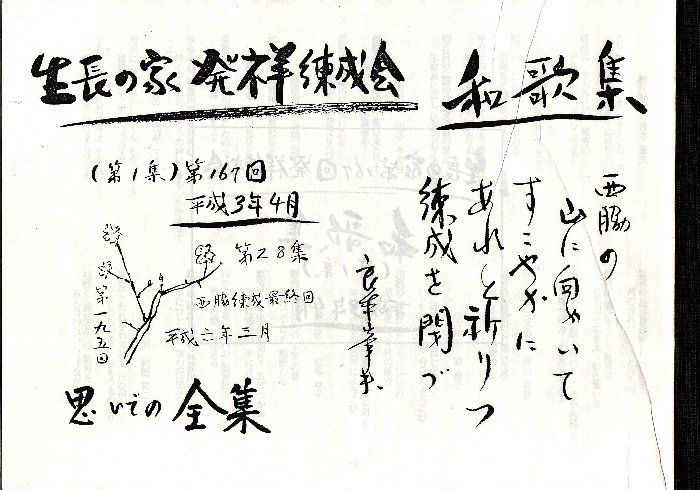 生長の家 発祥練成会 和歌集
(第1集) 第167回
平成3年4月
第28集
西脇練成最終回
平成六年三月
第一九五回
思いでの 全集
西脇の
山に向かいて
すこやかに
あれと祈りつ
練成を閉づ